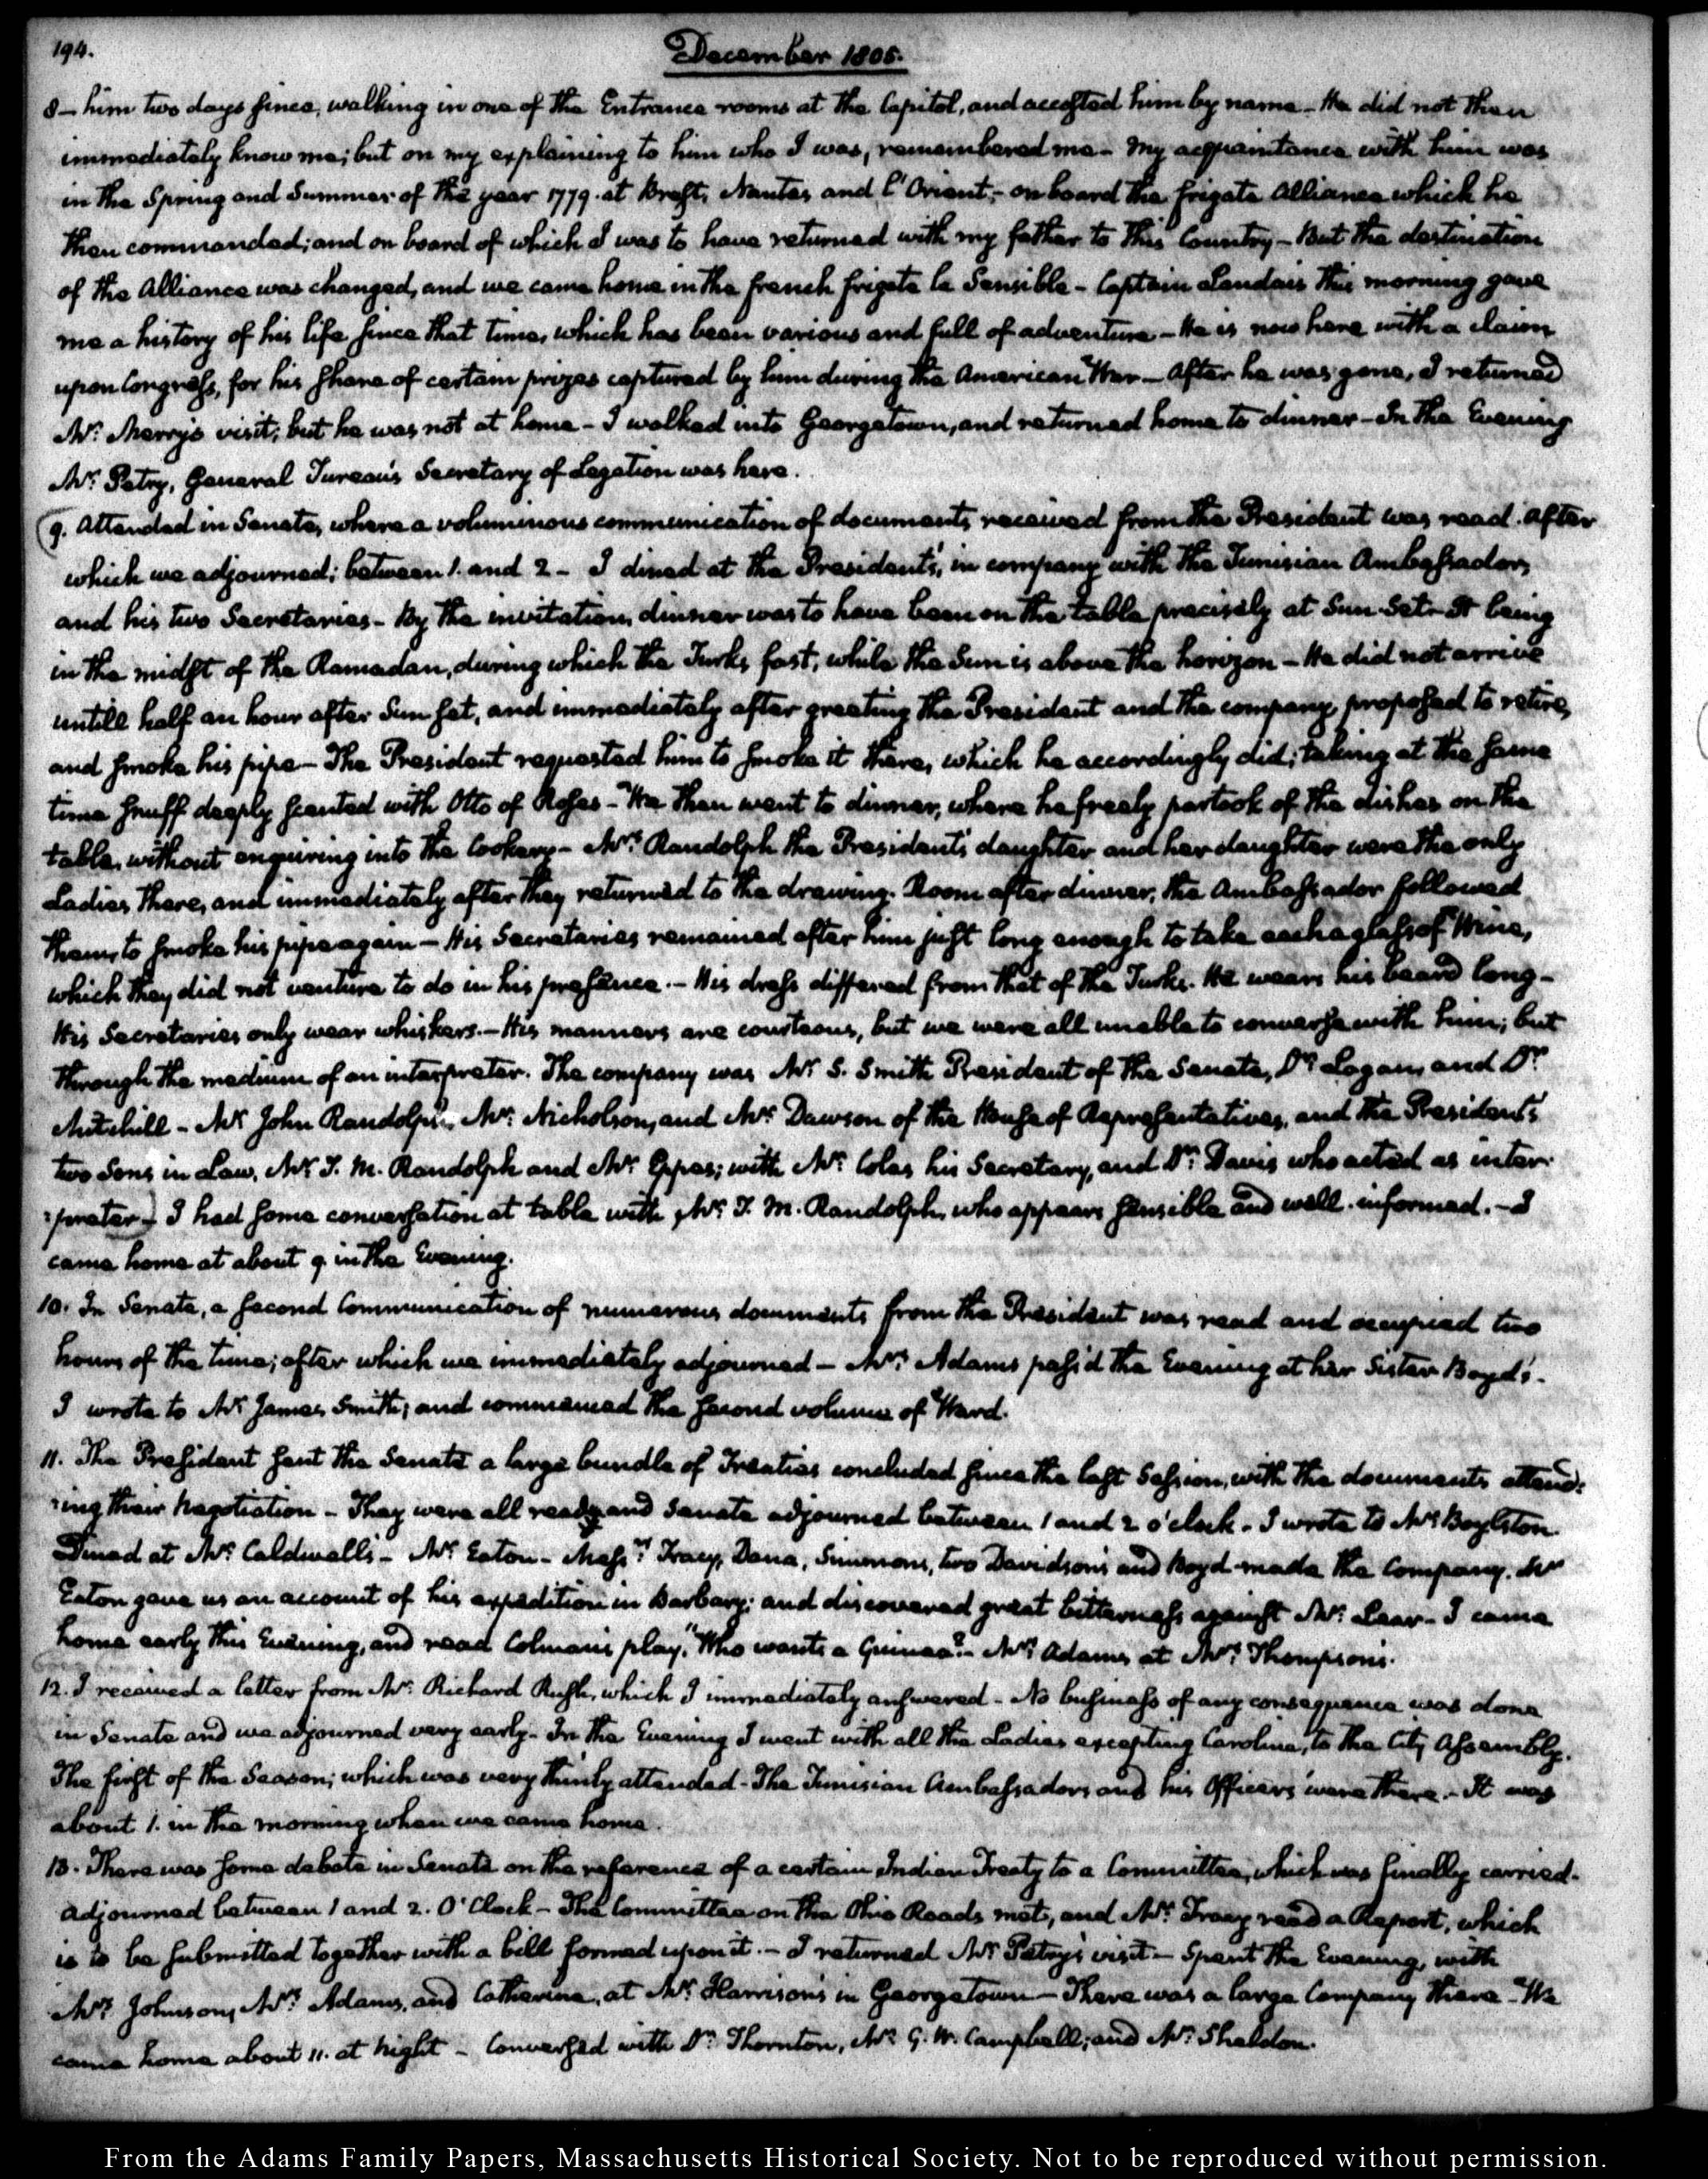 194.
December 1805.
8— him two days since, walking in one of the Entrance rooms at the Capitol, and accosted him by name – He did not then
immediately know me; but on my explaining to him who I was, remembered me – My acquaintance with him was
in the Spring and Summer of the year 1779. at Brest, Nantes and L'Orient; – on board the frigate Alliance which he
then commanded; and on board of which I was to have returned with my father to this Country – But the destination
of the Alliance was changed, and we came home in the french frigate la Sensible – Captain Landais this morning gave
me a history of his life since that time, which has been various and full of adventure – He is now here with a claim
upon Congress, for his share of certain prizes captured by him during the American War – After he was gone, I returned
Mr. Merry's visit; but he was not at home – I walked into Georgetown, and returned home to dinner – In the Evening
Mr. Petry, General Tureau's Secretary of Legation was here.
9. Attended in Senate, where a voluminous communication of documents, received from the President was read. After
which we adjourned; between 1. and 2 – I dined at the President's, in company with the Tunisian Ambassador,
and his two Secretaries – By the invitation, dinner was to have been on the table precisely at Sun-Set – It being
in the midst of the Ramadan, during which the Turks fast, while the Sun is above the horizon – He did not arrive
untill half an hour after Sun set, and immediately after greeting the President and the company, proposed to retire,
and smoke his pipe – The President requested him to smoke it there, which he accordingly did; taking at the same
time snuff deeply scented with Otto of Roses – We then went to dinner, where he freely partook of the dishes on the
table, without enquiring into the Cookery – Mrs. Randolph the President's daughter and her daughter were the only
Ladies there, and immediately after they returned to the drawing-Room after dinner, the Ambassador followed
them, to smoke his pipe again – His Secretaries remained after him just long enough to take each a glass of Wine,
which they did not venture to do in his presence. – His dress differed from that of the Turks. He wears his beard long –
His Secretaries only wear whiskers. – His manners are courteous, but we were all unable to converse with him; but
through the medium of an interpreter. The company was Mr. S. Smith President of the Senate, Dr. Logan, and Dr.
Mitchill – Mr. John Randolph, Mr. Nicholson, and Mr. Dawson of the House of Representatives, and the President's
two Sons in Law, Mr. T. M. Randolph and Mr. Eppes; with Mr. Coles his Secretary, and Dr. Davis who acted as inter-
:preter. – I had some conversation at table with Mr. T. M. Randolph, who appears sensible and well-informed. – I
came home at about 9 in the Evening.
10. In Senate, a second Communication of numerous documents from the President was read and occupied two
hours of the time; after which we immediately adjourned – Mrs. Adams pass'd the Evening at her Sister Boyd's –
I wrote to Mr. James Smith; and commenced the second volume of Ward.
11. The President sent the Senate a large bundle of Treaties concluded since the last Session, with the documents attend:
:ing their negotiation – They were all read, and Senate adjourned between 1 and 2 o'clock – I wrote to Mr. Boylston.
Dined at Mr. Caldwell's – Mr. Eaton – Messrs. Tracy, Dana, Simmons, two Davidson's and Boyd made the Company. Mr
Eaton gave us an account of his expedition in Barbary; and discovered great bitterness against Mr. Lear – I came
home early this Evening, and read Colman's play, "Who wants a Guinea?" – Mrs. Adams, at Mrs. Thompson's.
12. I received a letter from Mr. Richard Rush, which I immediately answered – No business of any consequence was done
in Senate and we adjourned very early – In the Evening I went with all the Ladies excepting Caroline, to the City Assembly.
The first of the Season; which was very thinly attended – The Tunisian Ambassador and his Officers were there. – It was
about 1. in the morning when we came home.
13. There was some debate in Senate on the reference of a certain Indian Treaty to a Committee, which was finally carried –
adjourned between 1 and 2. O'Clock – The Committee on the Ohio Roads met, and Mr. Tracy read a Report, which
is to be submitted together with a bill formed upon it. – I returned Mr. Petry's visit – Spent the Evening, with
Mrs. Johnson, Mrs. Adams, and Catherine, at Mr. Harrison's in Georgetown – There was a large Company there – We
came home about 11. at night – Conversed with Dr. Thornton, Mr. G. W. Campbell; and Mr. Sheldon.
From the Adams Family Papers, Massachusetts Historical Society. Not to be reproduced without permission.